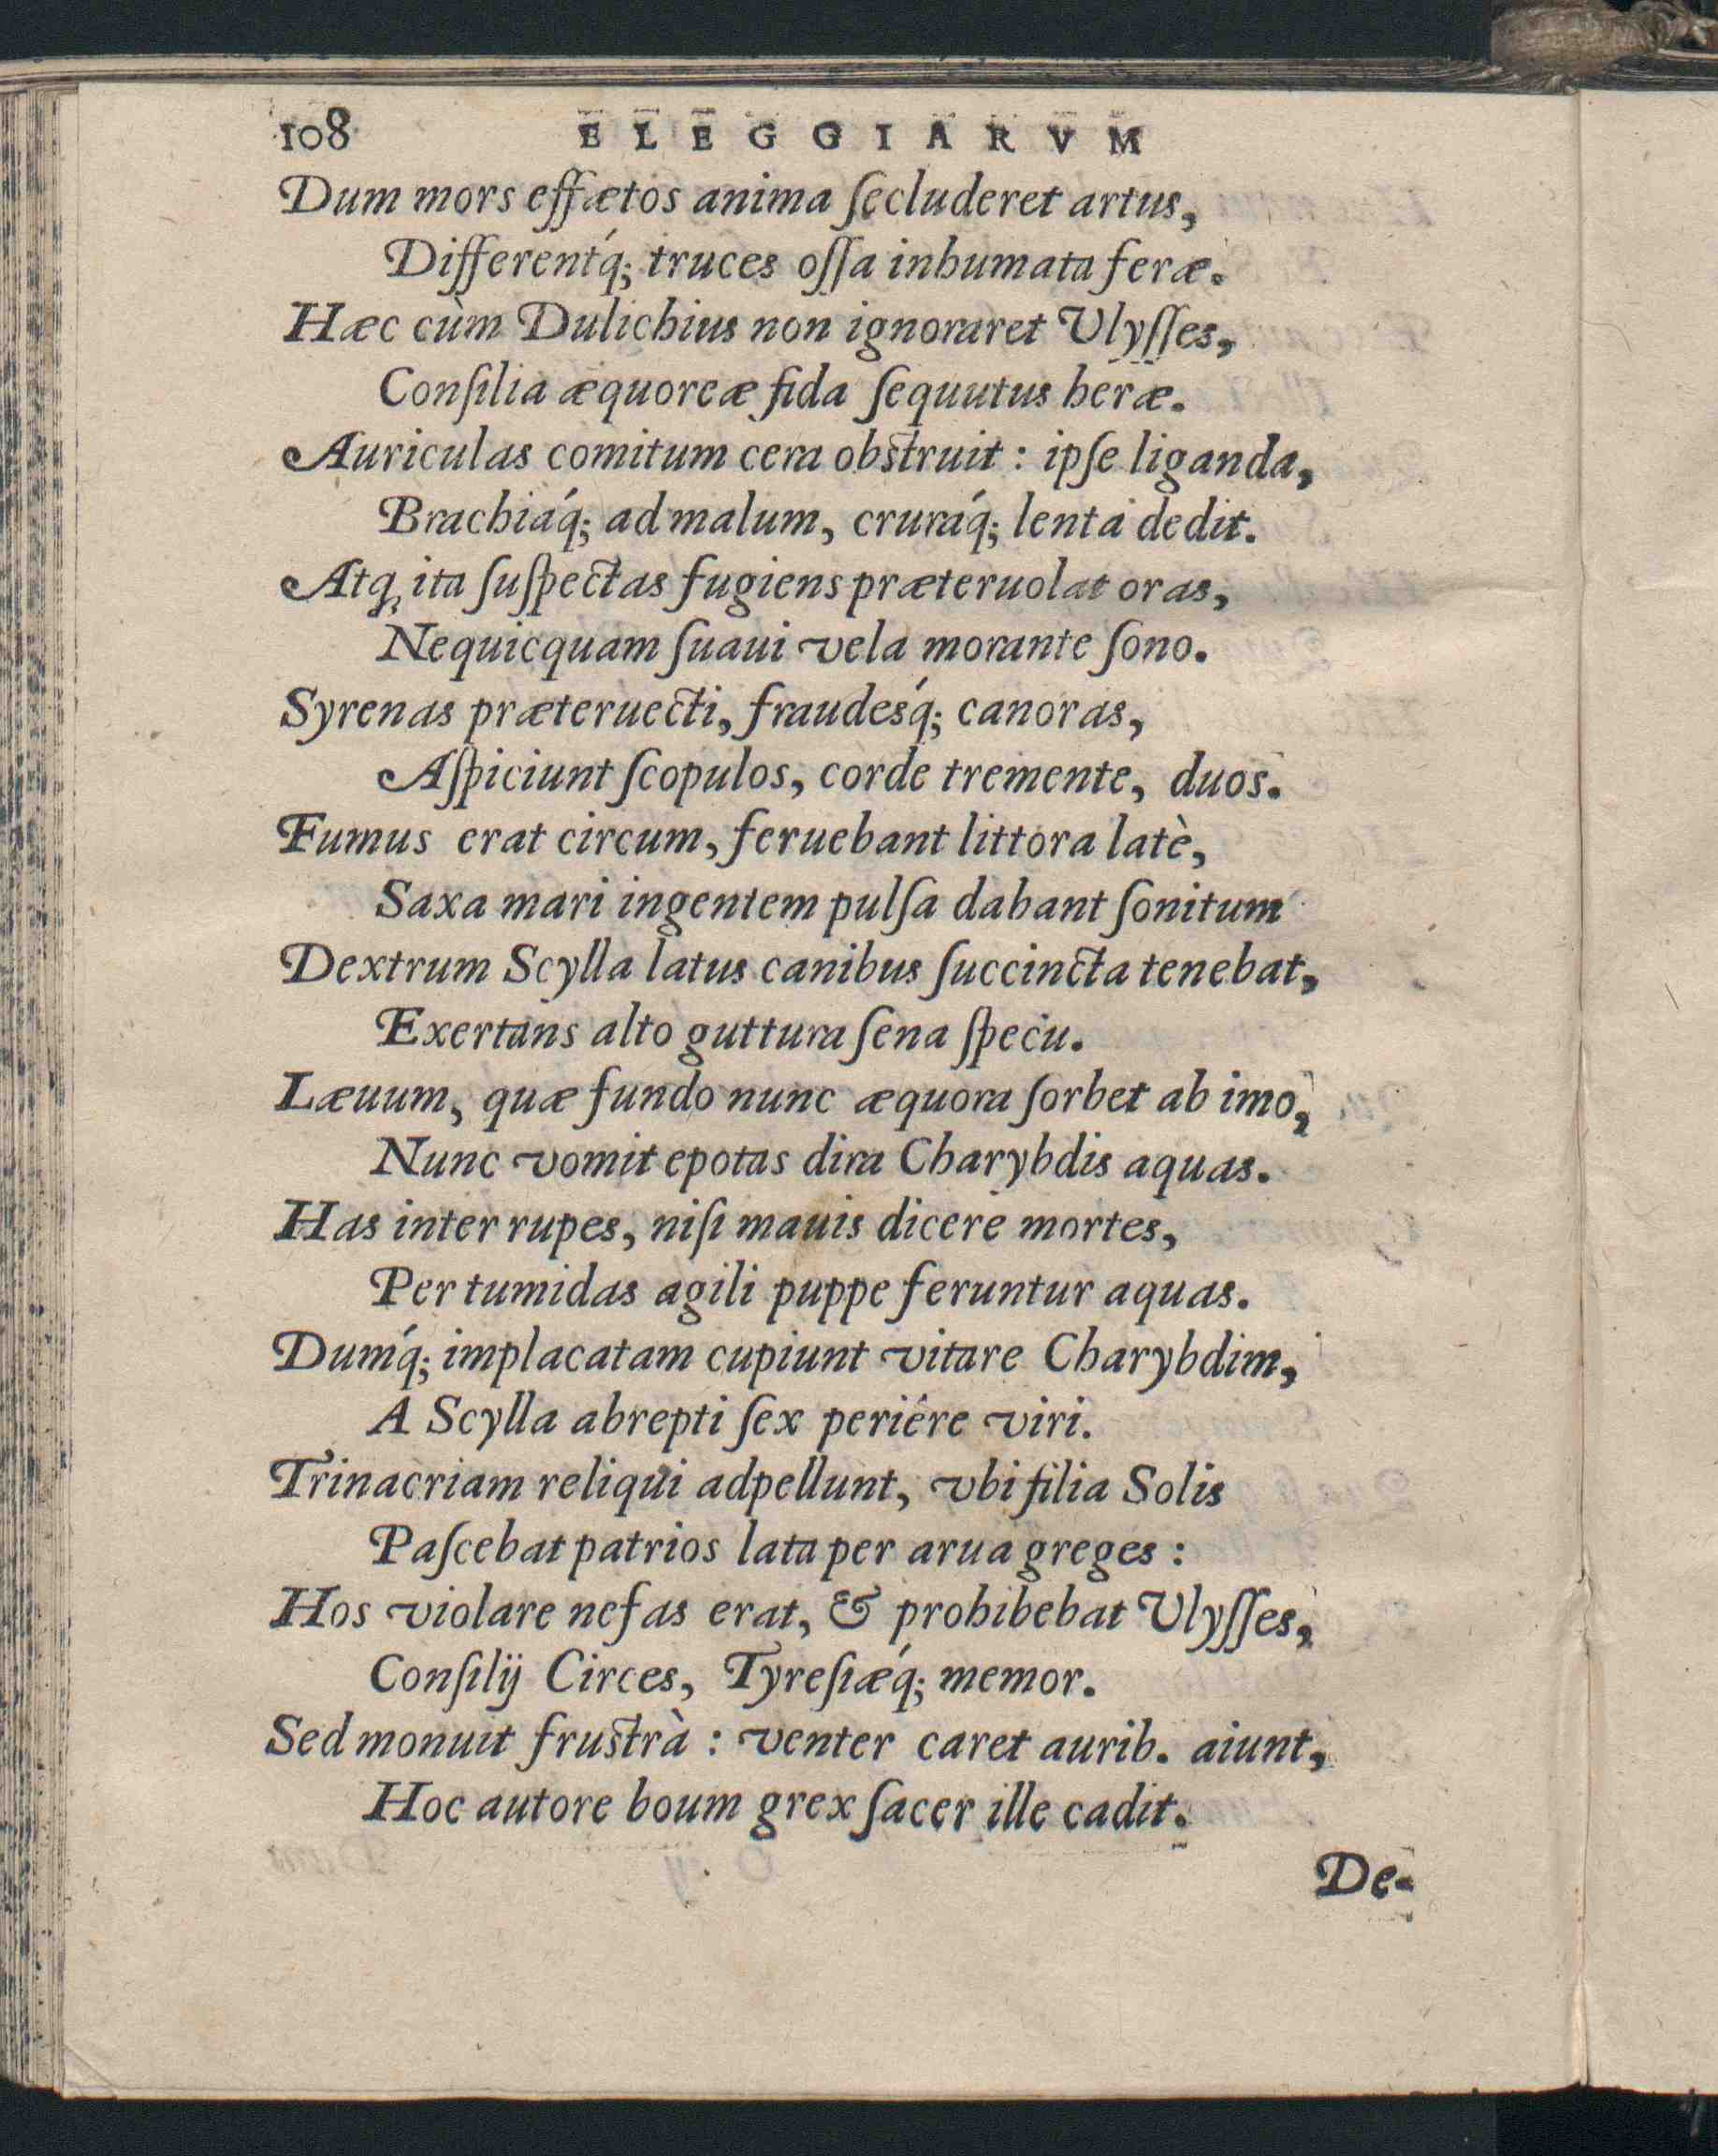 108 ELEGGIARVM
Dum mors effætos anima ſecluderet artus,
Differentq́; truces oſſa inhumata feræ.
Hæc cùm Dulichius non ignoraret Vlyſſes,
Conſilia æquoreæ fida ſequutus heræ.
Auriculas comitum cera obstruit : ipſe liganda,
Brachiáq́; ad malum, cruráq́; lenta dedit.
Atq; ita ſuſpectas fugiens præteruolat oras,
Nequicquam ſuaui vela morante ſono.
Syrenas præteruecti, fraudesq́; canoras,
Aſpiciunt ſcopulos, corde tremente, duos.
Fumus erat circum, feruebant littora latè,
Saxa mari ingentem pulſa dabant ſonitum
Dextrum Scylla latus canibus ſuccincta tenebat,
Exertans alto guttura ſena ſpecu.
Læuum, quæ fundo nunc æquora ſorbet ab imo,
Nunc vomit epotas dira Charybdis aquas.
Has inter rupes, niſi mauis dicere mortes,
Per tumidas agili puppe feruntur aquas.
Dumq́; implacatam cupiunt vitare Charybdim,
A Scylla abrepti ſex periére viri.
Trinacriam reliqui adpellunt, vbi filia Solis
Paſcebat patrios lata per arua greges :
Hos violare nefas erat, & prohibebat Vlyſſes,
Conſilij Circes, Tyreſiæq́; memor.
Sed monuit frustrà : venter caret aurib. aiunt,
Hoc autore boum grex ſacer ille cadit.
De-